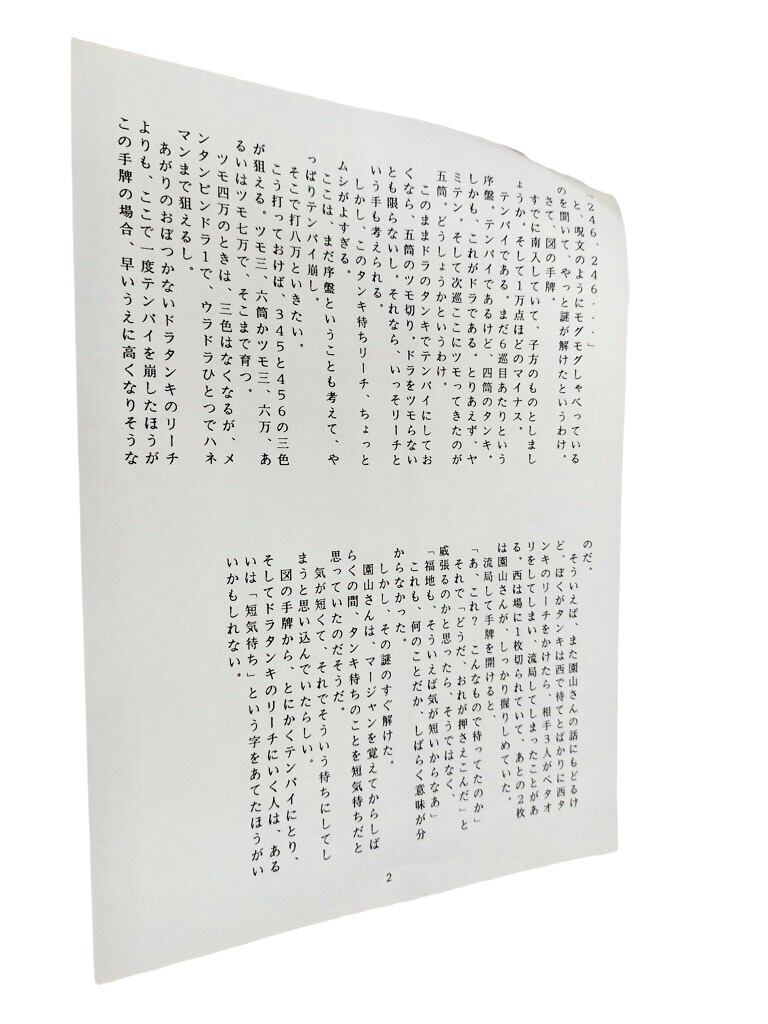 「246、246・・・」
と、呪文のようにモグモグしゃべっている
のを聞いて、やっと謎が解けたというわけ。
さて、図の手牌。
すでに南入していて、子方のものとしまし
ょうか。そして1万点ほどのマイナス。
テンパイである。まだ6巡目あたりという
序盤。テンパイであるけど、四筒のタンキ。
しかも、これがドラである。とりあえず、ヤ
ミテン。そして次巡ここにツモってきたのが
五筒。どうしょうかというわけ。
このままドラのタンキでテンパイにしてお
くなら、五筒のツモ切り。ドラをツモらない
とも限らないし。それなら、いっそリーチと
いう手も考えられる。
しかし、このタンキ待ちリーチ、ちょっと
ムシがよすぎる。
ここは、まだ序盤ということも考えて、や
っぱりテンパイ崩し。
そこで打八万といきたい。
こう打っておけば、345と456の三色
が狙える。ツモ三、六筒かツモ三、六万、あ
るいはツモ七万で、そこまで育つ。
ツモ四万のときは、三色はなくなるが、メ
ンタンピンドラ1で、ウラドラひとつでハネ
マンまで狙えるし。
あがりのおぼつかないドラタンキのリーチ
よりも、ここで一度テンパイを崩したほうが
この手牌の場合、早いうえに高くなりそうな
のだ。
そういえば、また園山さんの話にもどるけ
ど、ぼくがタンキは西で待てとばかりに西タ
ンキのリーチをかけたら、相手3人がベタオ
リをしてしまい、流局してしまったことがあ
る。西は場に1枚切られていて、あとの2枚
は園山さんが、しっかり握りしめていた。
流局して手牌を開けると、
「あ、これ?こんなもので待ってたのか」
それで「どうだ、おれが押さえこんだ」と
威張るのかと思ったら、そうではなく、
「福地も、そういえば気が短いからなあ」
これも、何のことだか、しばらく意味が分
からなかった。
しかし、その謎のすぐ解けた。
園山さんは、マージャンを覚えてからしば
らくの間、タンキ待ちのことを短気待ちだと
思っていたのだそうだ。
気が短くて、それでそういう待ちにしてし
まうと思い込んでいたらしい。
図の手牌から、とにかくテンパイにとり、
そしてドラタンキのリーチにいく人は、ある
いは「短気待ち」という字をあてたほうがい
いかもしれない。
2